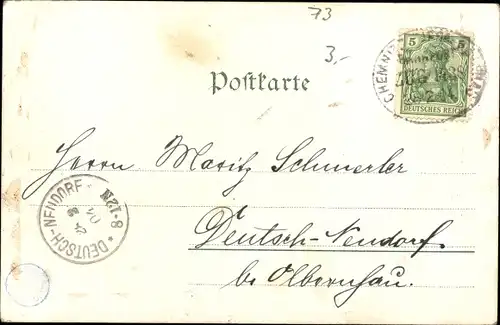 73
3,-
5 5
DEUTSCHES REICH
CHEMNITZ
ZUG
Postkarte
Herrn Moritz Schmerler
Deutsch-Neudorf
b/ Olbernhau.
* DEUTSCH-NEUDORF *
8-12N